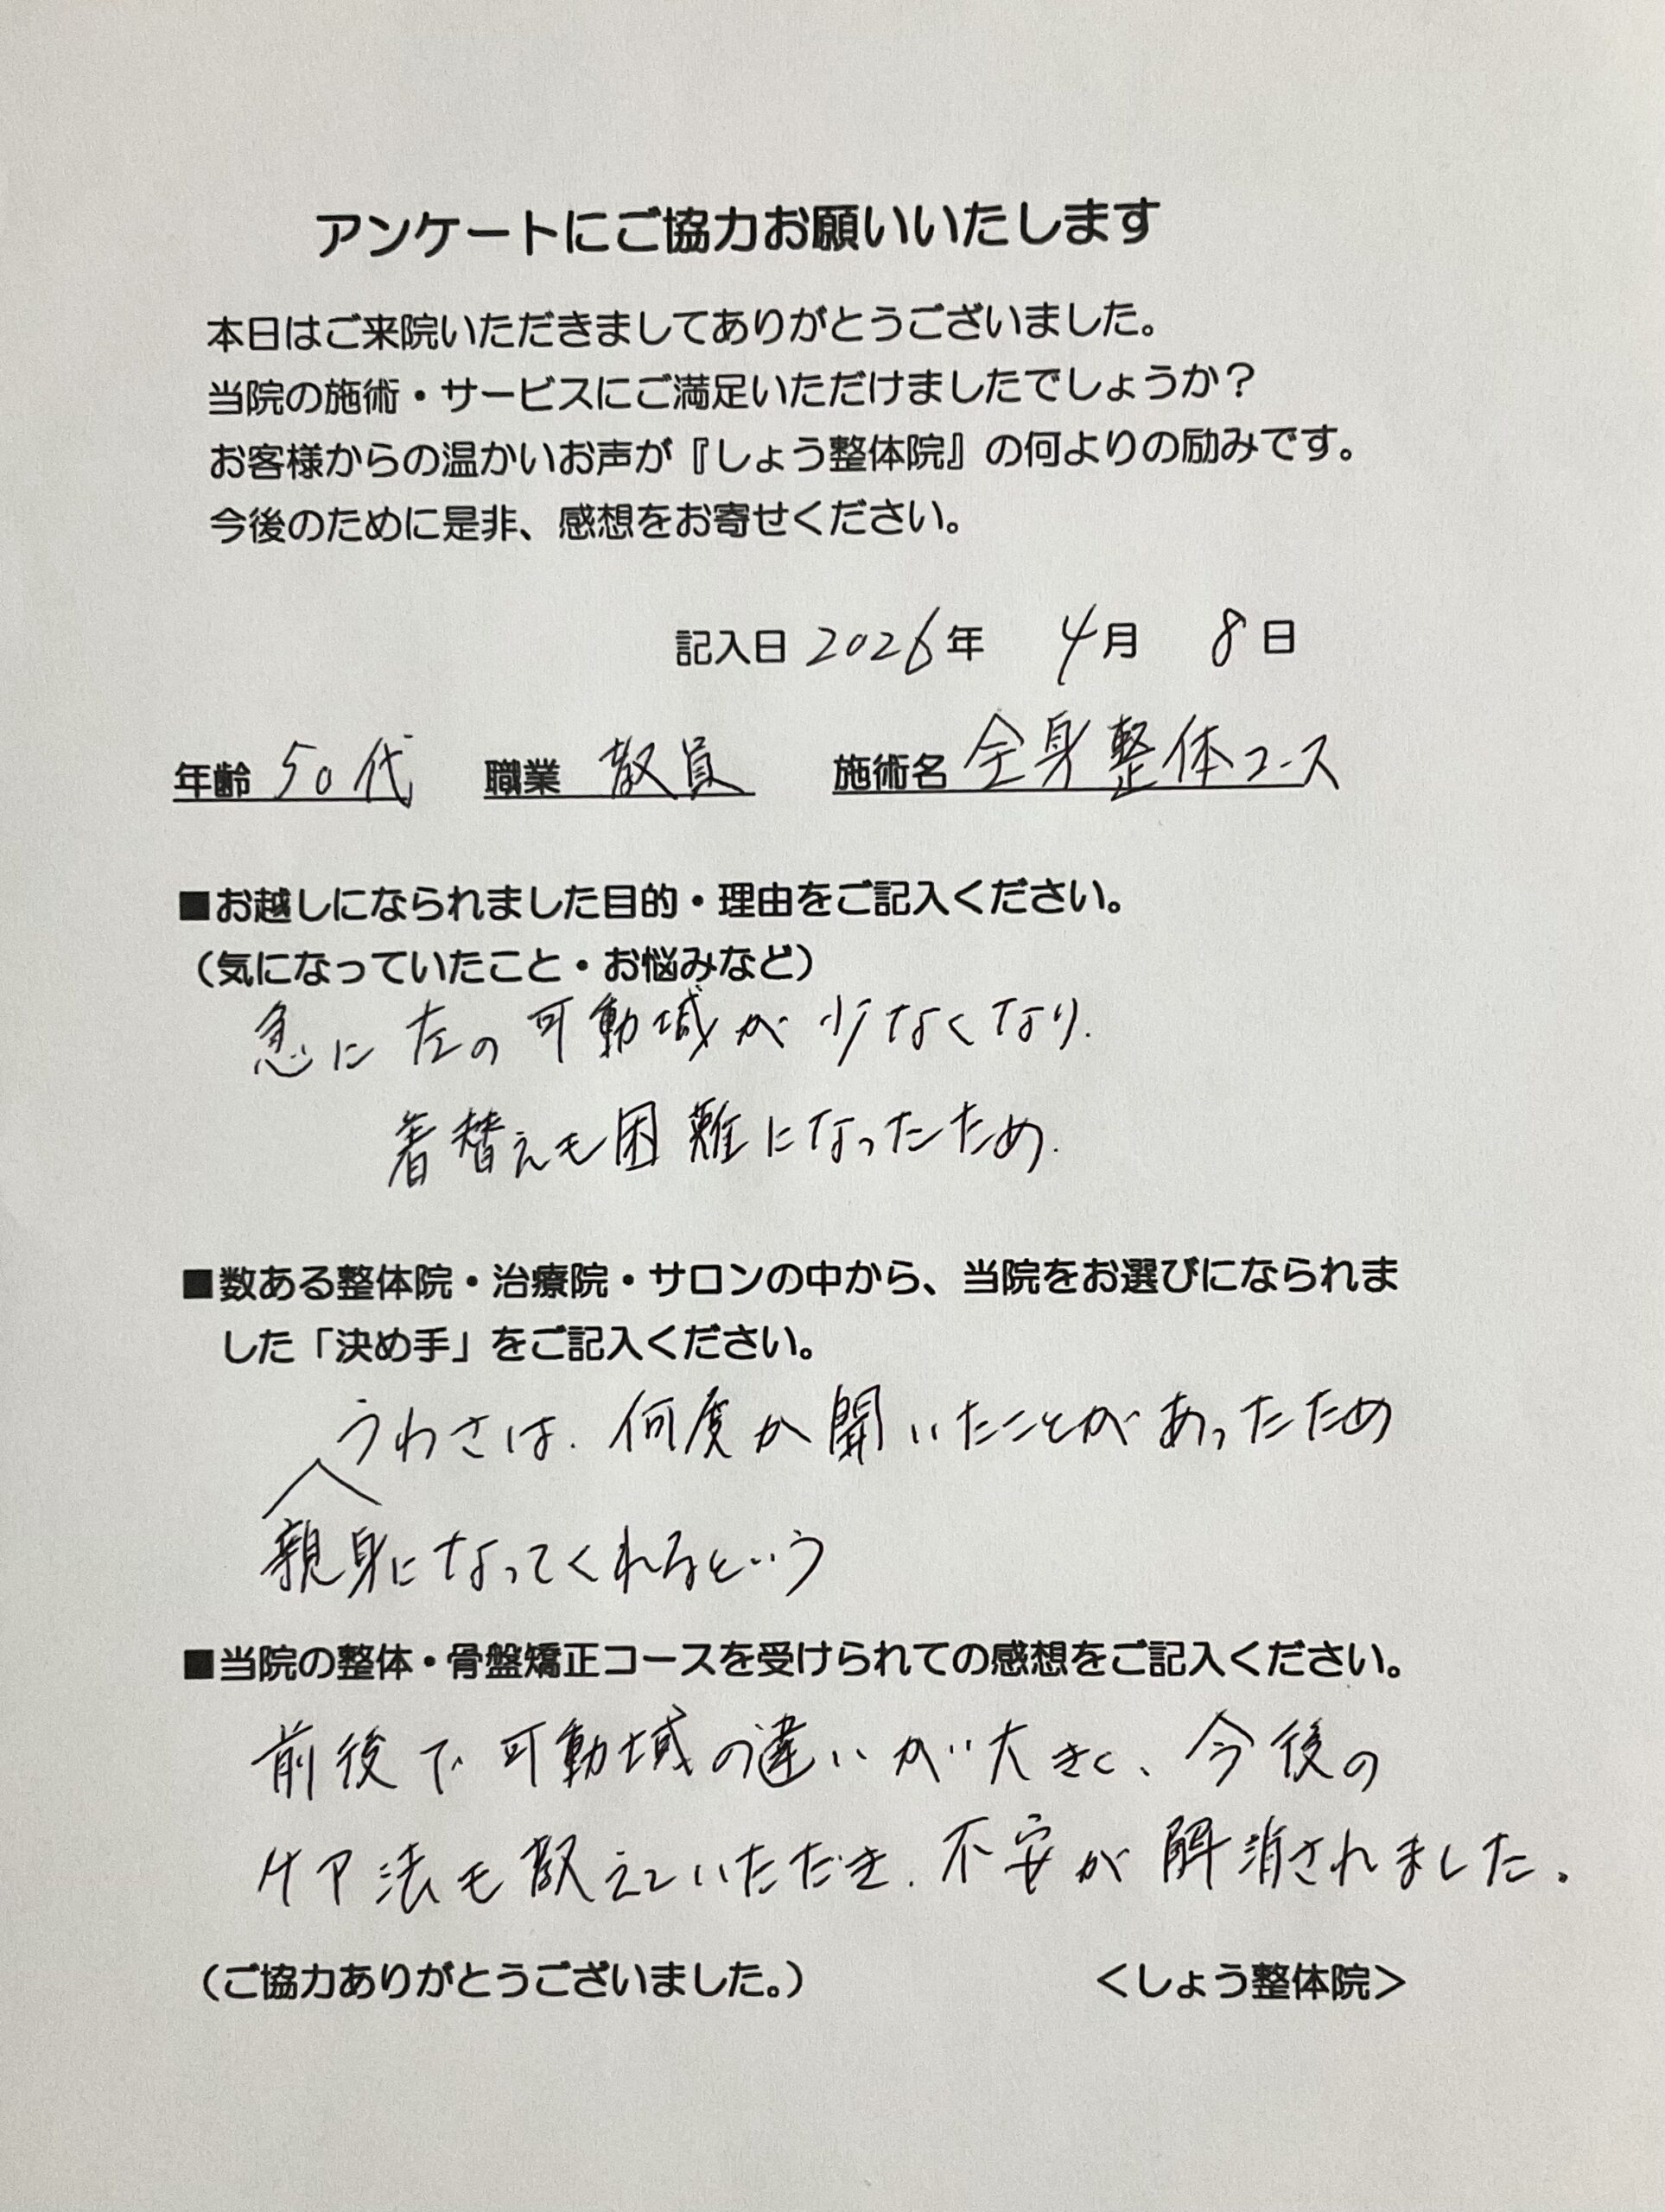 アンケートにご協力お願いいたします
本日はご来院いただきましてありがとうございました。
当院の施術・サービスにご満足いただけましたでしょうか？
お客様からの温かいお声が『しょう整体院』の何よりの励みです。
今後のために是非、感想をお寄せください。
記入日 2026年 4月 8日
年齢 50代 職業 教員 施術名 全身整体コース
■お越しになられました目的・理由をご記入ください。
（気になっていたこと・お悩みなど）
急に左の可動域が少なくなり、
着替えも困難になったため、
■数ある整体院・治療院・サロンの中から、当院をお選びになられま
した「決め手」をご記入ください。
うわさは、何度か聞いたことがあったため
親身になってくれるという
■当院の整体・骨盤矯正コースを受けられての感想をご記入ください。
前後で可動域の違いが大きく、今後の
ケア法も教えていただき、不安が解消されました。
（ご協力ありがとうございました。） ＜しょう整体院＞